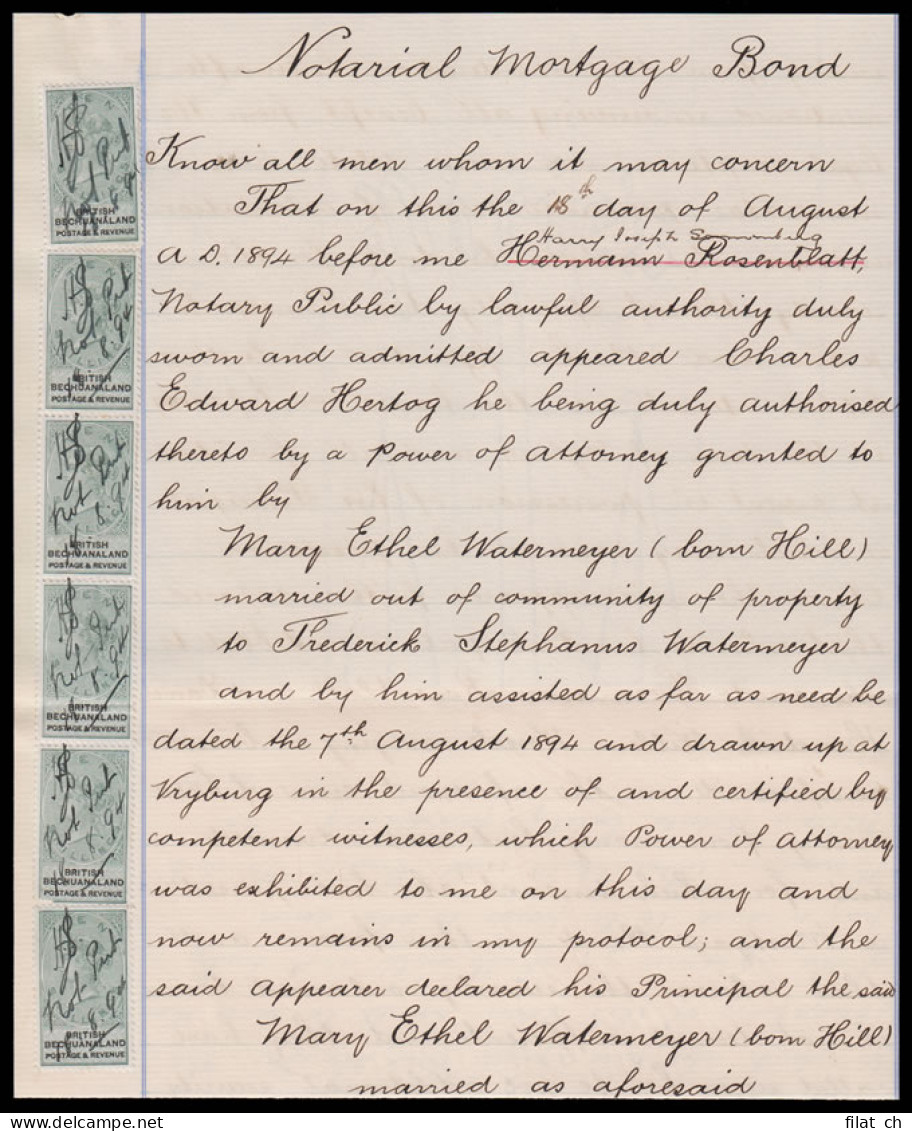 Notarial Mortgage Bond
Know all men whom it may concern
That on this the 18th day of August
Harry Joseph Sonnenberg
A D. 1894 before me Hermann Rosenblatt,
Notary Public by lawful authority duly
sworn and admitted appeared Charles
Edward Hertog he being duly authorised
thereto by a Power of Attorney granted to
him by
Mary Ethel Watermeyer (born Hill)
married out of community of property
to Frederick Stephanus Watermeyer
and by him assisted as far as need be
dated the 7th August 1894 and drawn up at
Vryburg in the presence of and certified by
competent witnesses, which Power of Attorney
was exhibited to me on this day and
now remains in my protocol; and the
said Appearer declared his Principal the said
Mary Ethel Watermeyer (born Hill)
married as aforesaid
Not Pub
18.8.94
BRITISH
BECHUANALAND
POSTAGE & REVENUE
Not Pub
18.8.94
BRITISH
BECHUANALAND
POSTAGE & REVENUE
Not Pub
18.8.94
BRITISH
BECHUANALAND
POSTAGE & REVENUE
Not Pub
18.8.94
BRITISH
BECHUANALAND
POSTAGE & REVENUE
Not Pub
18.8.94
BRITISH
BECHUANALAND
POSTAGE & REVENUE
Not Pub
18.8.94
BRITISH
BECHUANALAND
POSTAGE & REVENUE
filat ch